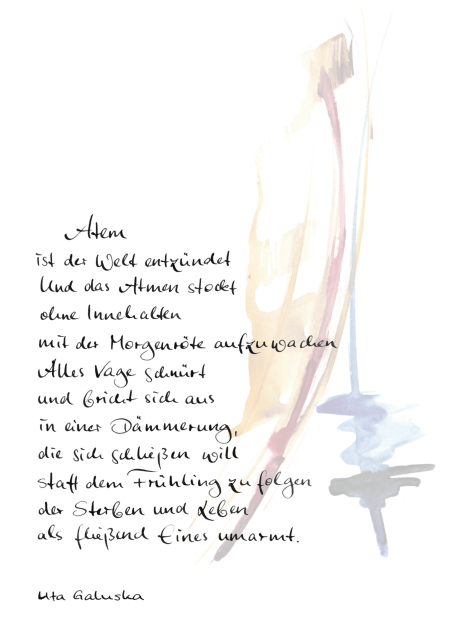 Atem
ist der Welt entzündet
Und das Atmen stockt
ohne Innehalten
mit der Morgenröte aufzuwachen
Alles Vage schnürt
und bricht sich aus
in einer Dämmerung,
die sich schließen will
statt dem Frühling zu folgen
der Sterben und Leben
als fließend Eines umarmt.
Uta Galuska